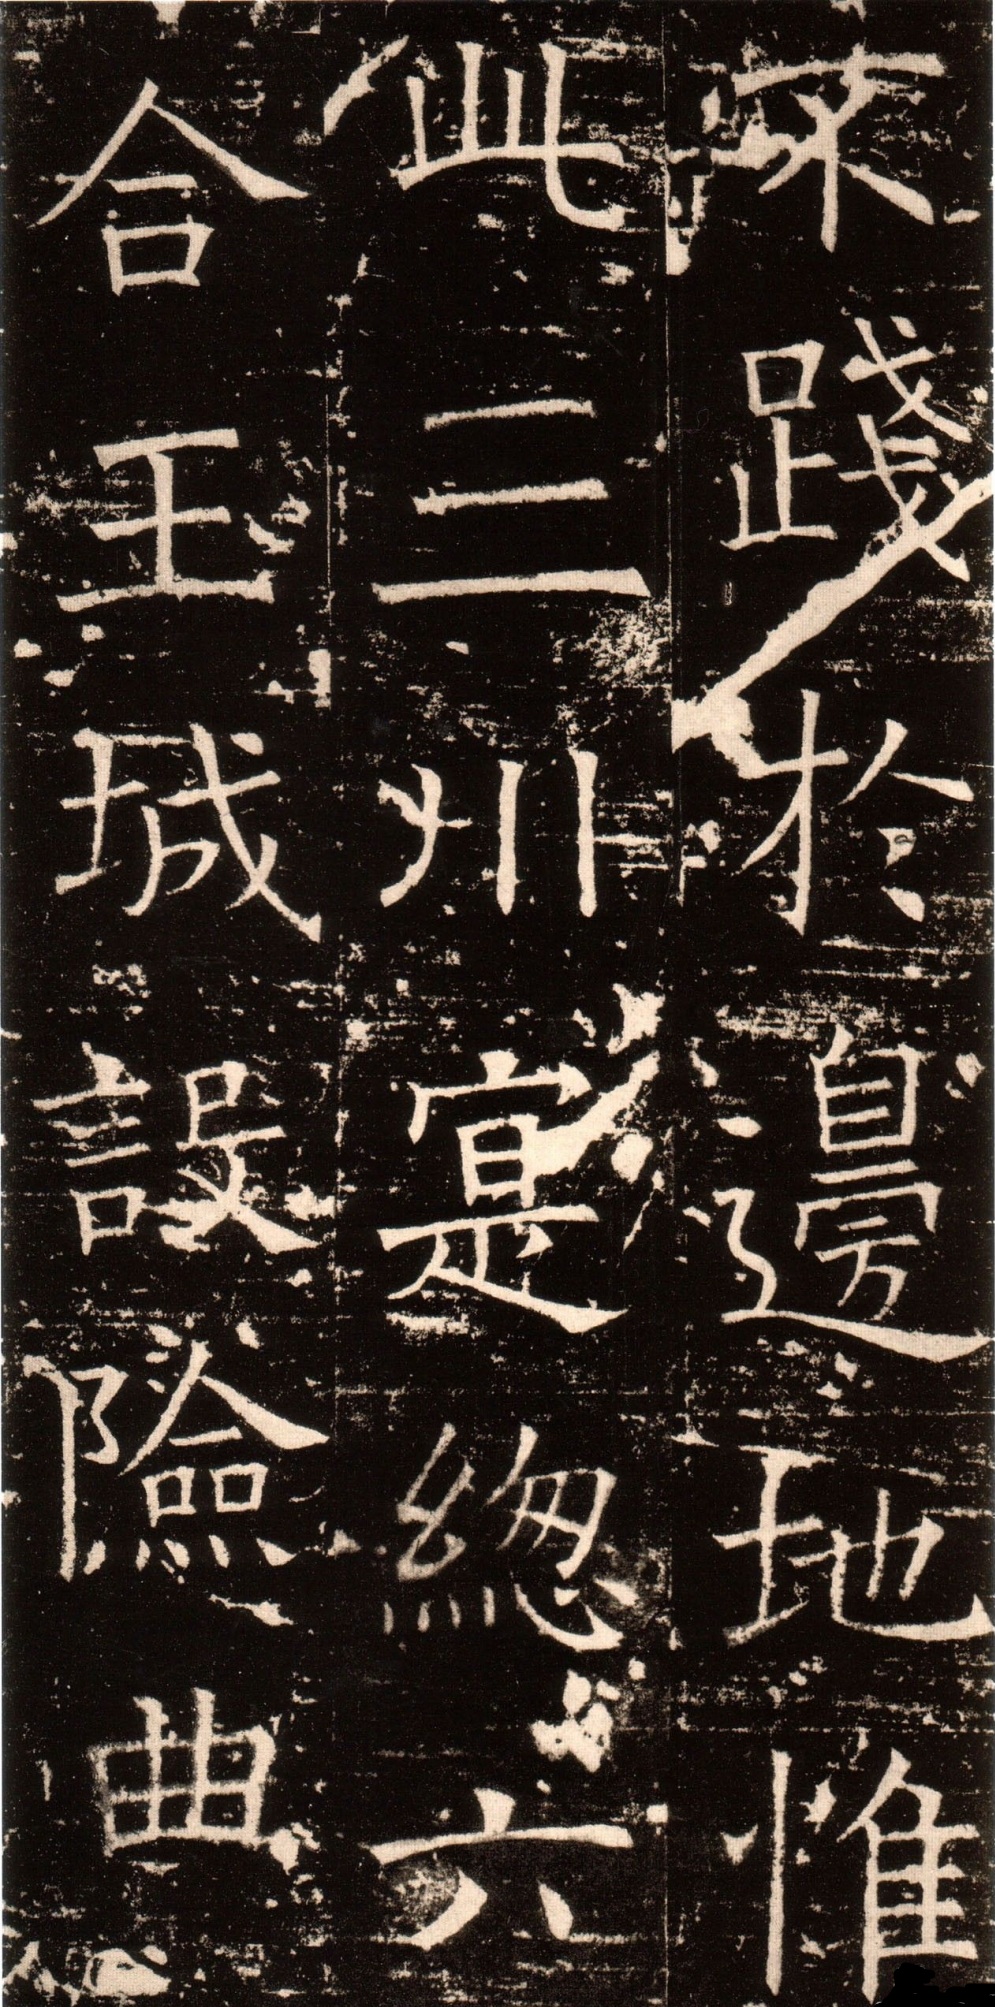 不踐於邊地惟
此三川寔總六
合王城設險曲